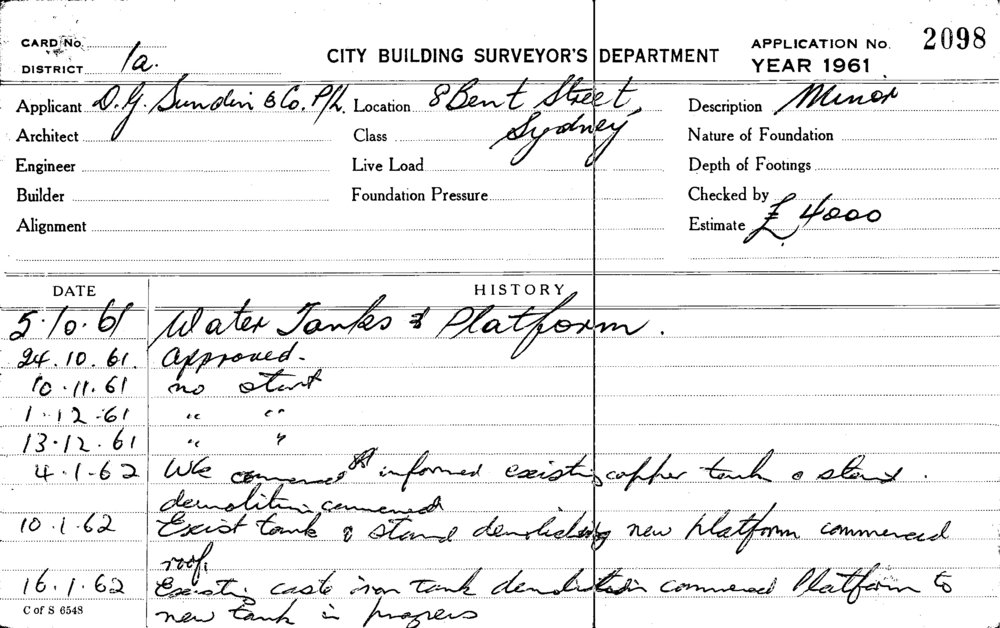 CARD No.
DISTRICT 1a.
CITY BUILDING SURVEYOR'S DEPARTMENT
APPLICATION No. 2098
YEAR 1961
Applicant D. G. Sundin & Co. P/L. Location 8 Bent Street, Description Minor
Architect Class Sydney Nature of Foundation
Engineer Live Load Depth of Footings
Builder Foundation Pressure Checked by
Alignment Estimate £ 4000
DATE HISTORY
5.10.61 Water Tanks & Platform.
24.10.61. Approved.
10.11.61 no start
1.12.61 " "
13.12.61 " "
4.1.62 Wk commenced informed existing copper tank & stand.
demolition commenced
10.1.62 Exist tank & stand demolished new platform commenced
roof.
16.1.62 Existing caste iron tank demolition commenced Platform to
C of S 6548
new tank in progress